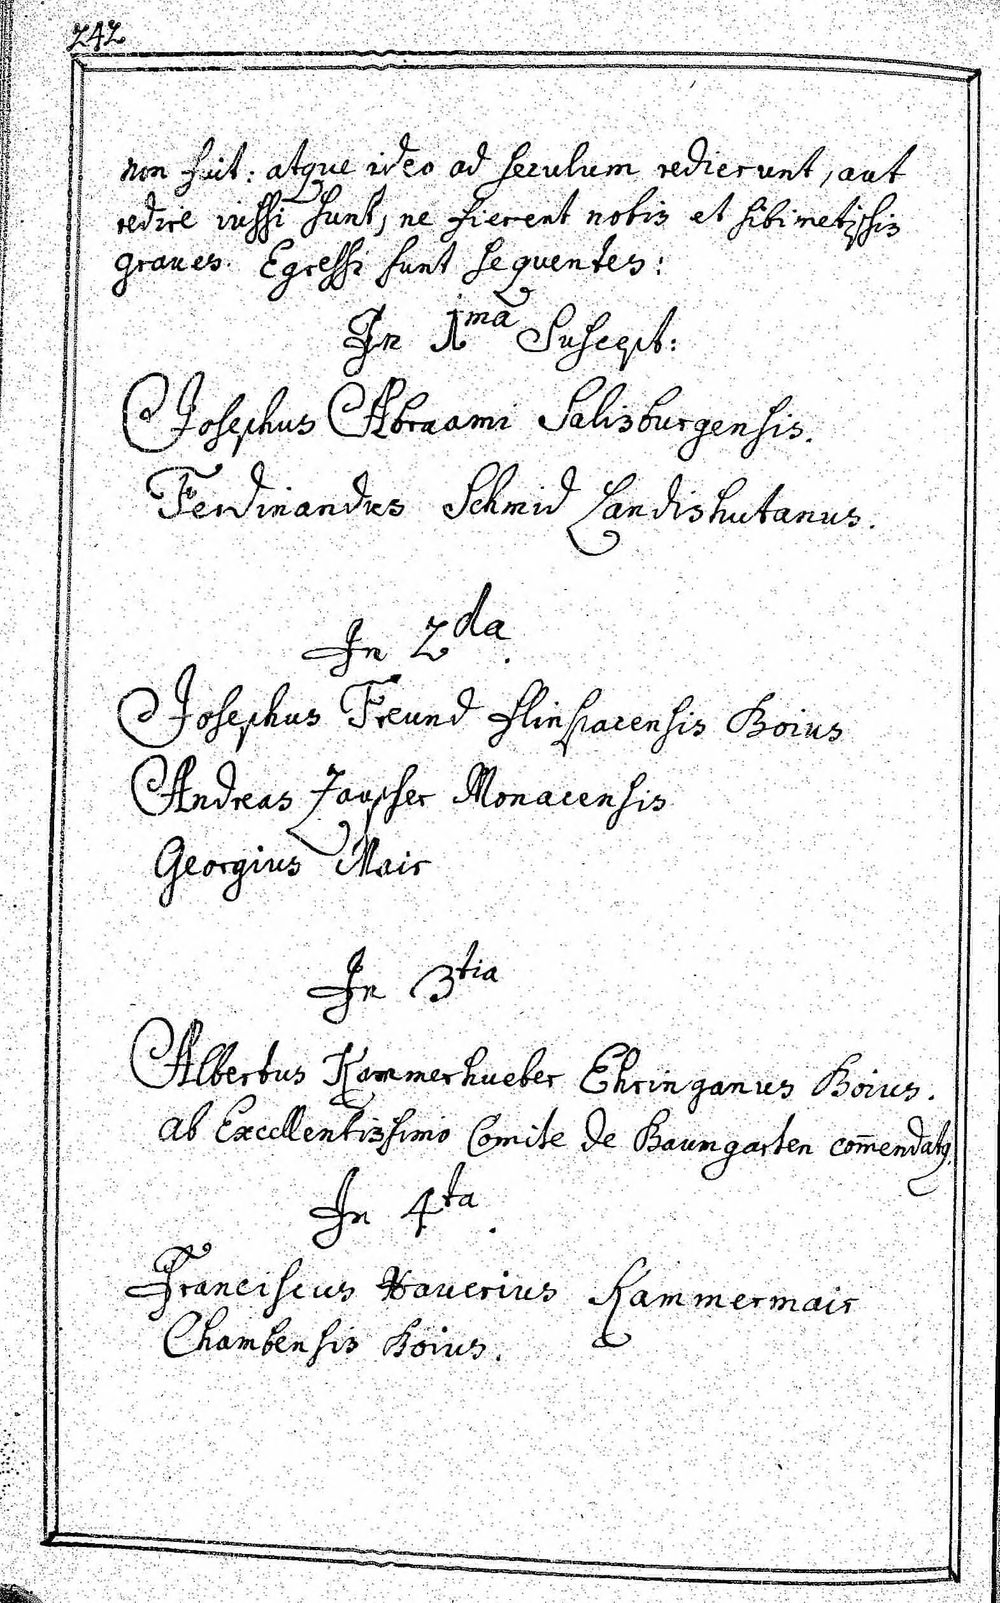 242
non fuit: atque ideo ad seculum redierunt, aut
redire iussi sunt, ne fierent nobis et sibimetipsis
graues. Egressi sunt sequentes:
In 1ma Suscept:
Josephus Abraami Salisburgensis.
Ferdinandus Schmid Landishutanus.
In 2da.
Josephus Freund Flinspacensis Boius
Andreas Zaupser Monacensis
Georgius Mair
In 3tia
Albertus Kammerhueber Ehringanus Boius.
ab Excellentissimo Comite de Baumgarten com̄endatq.
In 4ta.
Franciscus Xauerius Kammermair
Chambensis Boius.